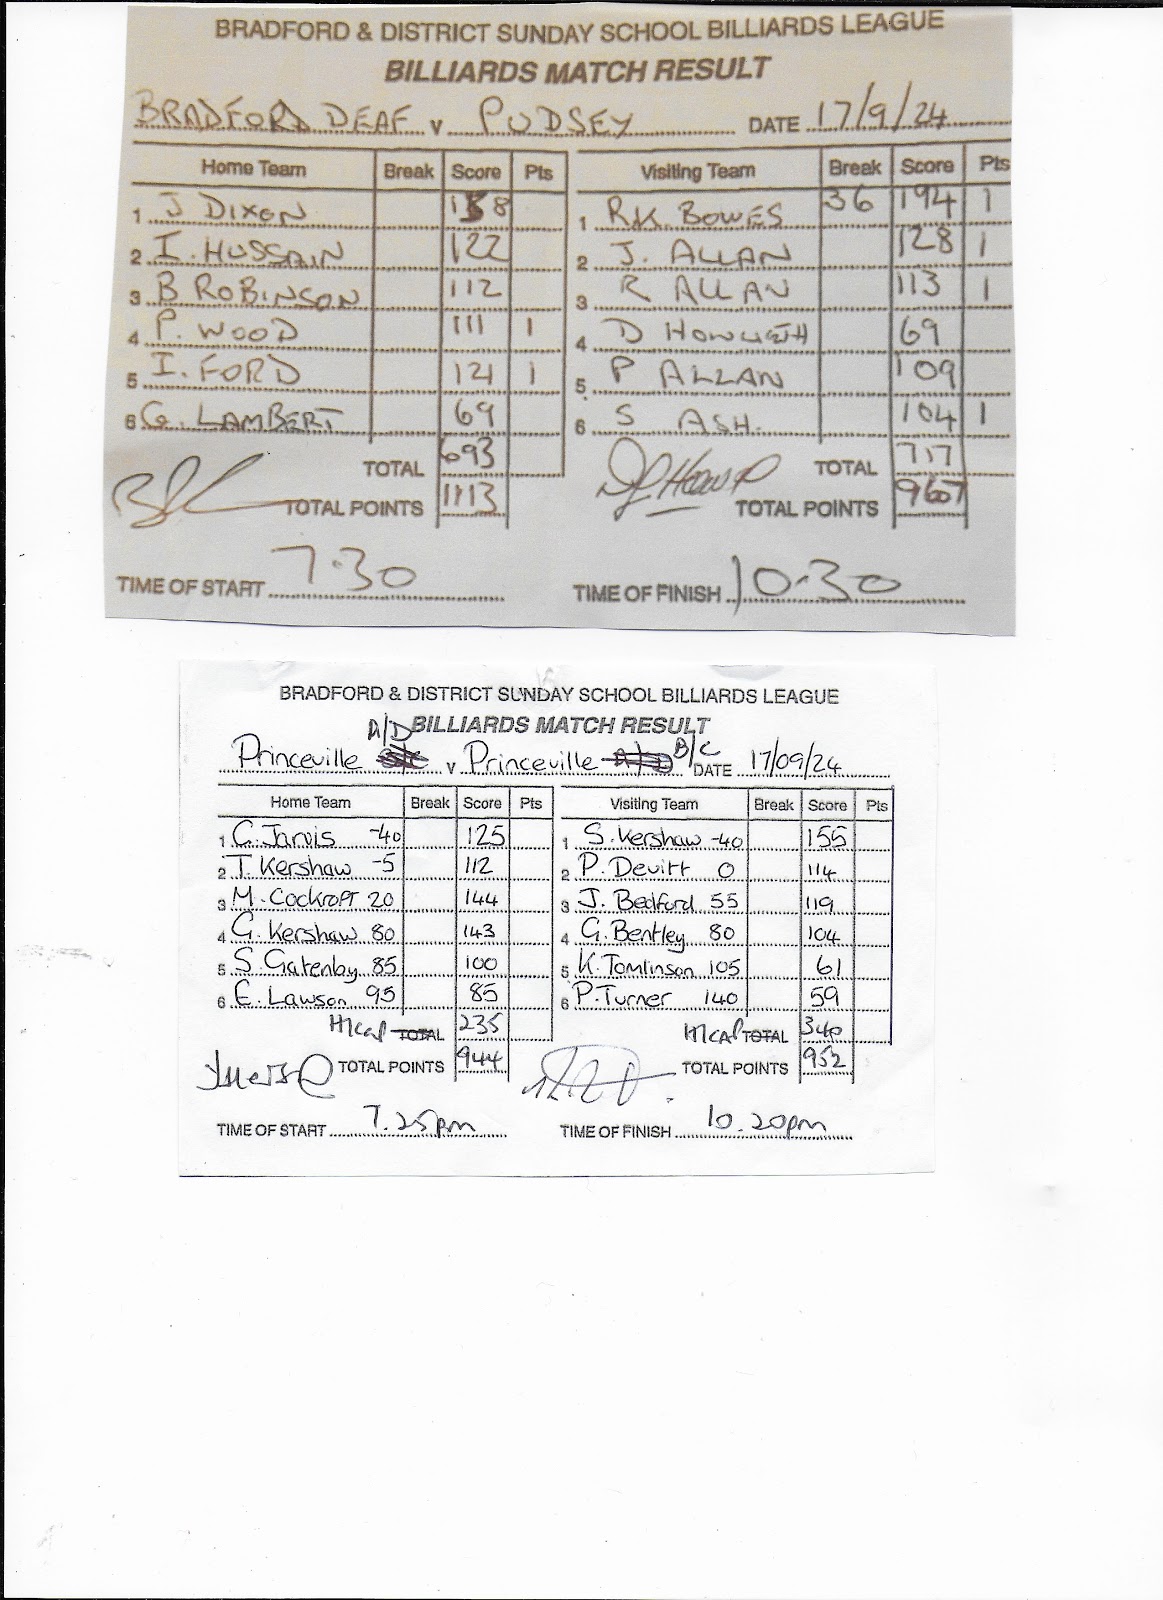 BRADFORD & DISTRICT SUNDAY SCHOOL BILLIARDS LEAGUE
BILLIARDS MATCH RESULT
BRADFORD DEAF v PUDSEY DATE 17/9/24
Home Team Break Score Pts Visiting Team Break Score Pts
1 J DIXON 158 1 R.K. BOWES 36 194 1
2 I. HUSSAIN 122 2 J. ALLAN 128 1
3 B ROBINSON 112 3 R ALLAN 113 1
4 P. WOOD 111 1 4 D HOWORTH 69
5 I. FORD 121 1 5 P ALLAN 109
6 G. LAMBERT 69 6 S ASH. 104 1
TOTAL 693 TOTAL 717
TOTAL POINTS 1113 TOTAL POINTS
TIME OF START 7.30 TIME OF FINISH 10.30
BRADFORD & DISTRICT SUNDAY SCHOOL BILLIARDS LEAGUE
BILLIARDS MATCH RESULT
Princeville A/D v Princeville B/C DATE 17/09/24
Home Team Break Score Pts Visiting Team Break Score Pts
1 C. Jarvis -40 125 1 S. Kershaw -40 155
2 T. Kershaw -5 112 2 P. Devitt 0 114
3 M. Cockroft 20 144 3 J. Bedford 55 119
4 G. Kershaw 80 143 4 G. Bentley 80 104
5 S. Gatenby 85 100 5 K. Tomlinson 105 61
6 E. Lawson 95 85 6 P. Turner 140 59
H'CAP TOTAL 235 H'CAP TOTAL 340
TOTAL POINTS 944 TOTAL POINTS 952
TIME OF START 7.25pm TIME OF FINISH 10.20pm